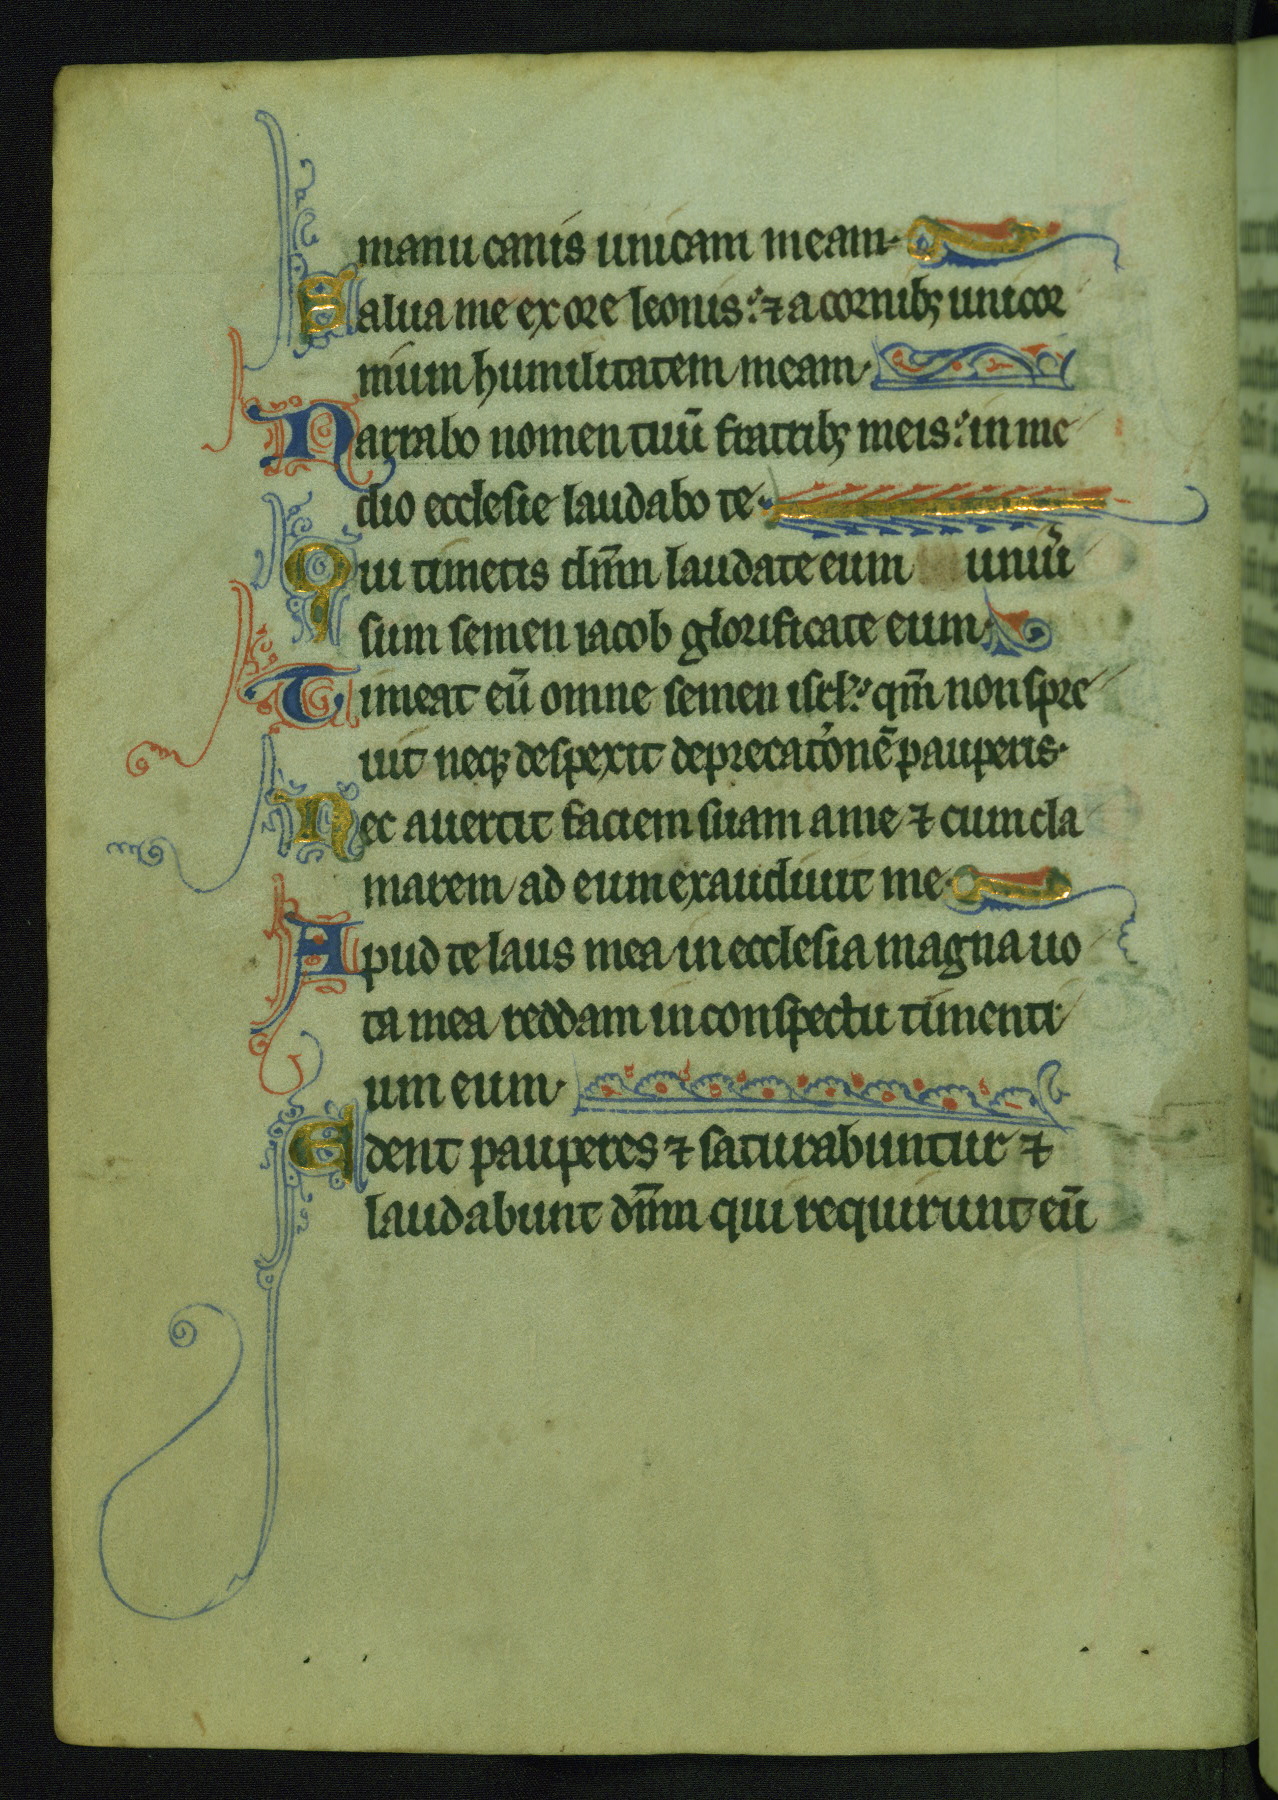 manu canis unicam meam·
Salua me ex ore leonis: ⁊ a cornibꝫ unicor
nium humilitatem meam·
Narrabo nomen tuū fratribꝫ meis: in me
dio ecclesie laudabo te·
Qui timetis dn̄m laudate eum uniũ
sum semen iacob glorificate eum·
Timeat eū omne semen isrl: qm̄ non spre
uit neqꝫ despexit deprecatōnē pauperis·
Nec auertit faciem suam a me ⁊ cum cla
marem ad eum exaudiuit me·
Apud te laus mea in ecclesia magna uo
ta mea reddam in conspectu timenti
um eum·
Edent pauperes ⁊ saturabuntur ⁊
laudabunt dn̄m qui requirunt eū